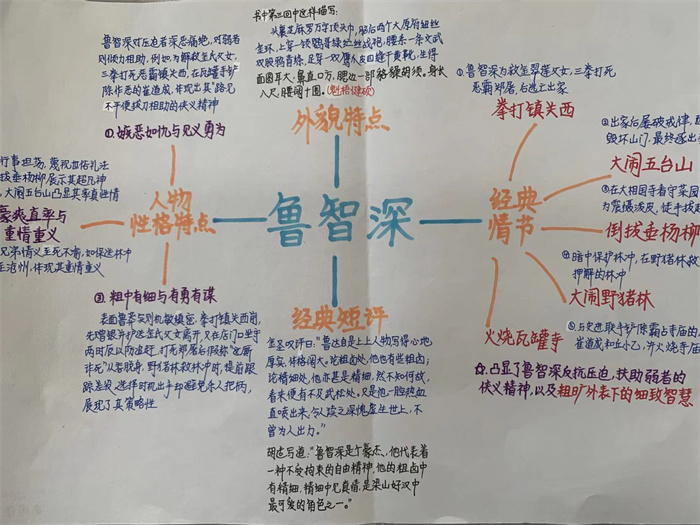 鲁智深
外貌特点
书中第三回中这样描写:
头裹芝麻罗万字顶头巾, 脑后两个太原府纽丝
金环, 上穿一领鹦哥绿纻丝战袍, 腰系一条文武
双股鸦青绦, 足穿一双鹰爪皮四缝干黄靴, 生得
面圆耳大, 鼻直口方, 腮边一部络腮胡须。身长
八尺, 腰阔十围。(魁梧健硕)
人物
性格特点
鲁智深对压迫者深恶痛绝, 对弱者
则倾力相助, 例如为解救金氏父女,
三拳打死恶霸镇关西, 在瓦罐寺铲
除作恶的崔道成, 体现出其"路见
不平便拔刀相助的侠义精神
①嫉恶如仇与见义勇为
行事坦荡, 蔑视世俗礼法
拔垂杨柳展示其超凡神
大闹五台山凸显其率真性情
豪爽直率与
重情重义
兄弟情义至死不渝, 如保送林冲
至沧州, 体现其重情重义
③ 粗中有细与有勇有谋
表面鲁莽实则机敏缜密, 拳打镇关西前,
先赠银并护送金氏父女离开, 又在店门口坐守
两时辰以防追赶, 打死郑屠后假称"这厮
诈死"从容脱身, 野猪林救林冲时, 提前跟
踪差役, 选择时机出手却避免杀人把柄,
展现了其策略性
经典短评
金圣叹评曰:"鲁达自是上上人物写得心地
厚实, 体格阔大。论粗卤处, 他也有些粗卤;
论精细处, 他亦甚是精细, 然不知何故,
看来便有不及武松处。又是他一腔热血
直喷出来, 令人读之深愧虚生世上, 不
曾为人出力。"
胡适写道:"鲁智深是个豪杰, 他代表着
一种不受拘束的自由精神, 他的粗卤中
有精细, 精细中见真情, 是梁山好汉中
最可爱的角色之一。"
经典
情节
①鲁智深为救金翠莲父女, 三拳打死
恶霸郑屠, 后逃亡出家
拳打镇关西
②出家后屡破戒律,
毁坏山门, 最终逐出
大闹五台山
③在大相国寺看守菜园
为震慑泼皮, 徒手拔起
倒拔垂杨柳
④暗中保护林冲, 在野猪林救
押解的林冲
大闹野猪林
⑤与史进联手铲除霸占寺庙的
崔道成和丘小乙, 并火烧寺庙
火烧瓦罐寺
凸显了鲁智深反抗压迫, 扶助弱者的
侠义精神, 以及粗旷外表下的细致智慧